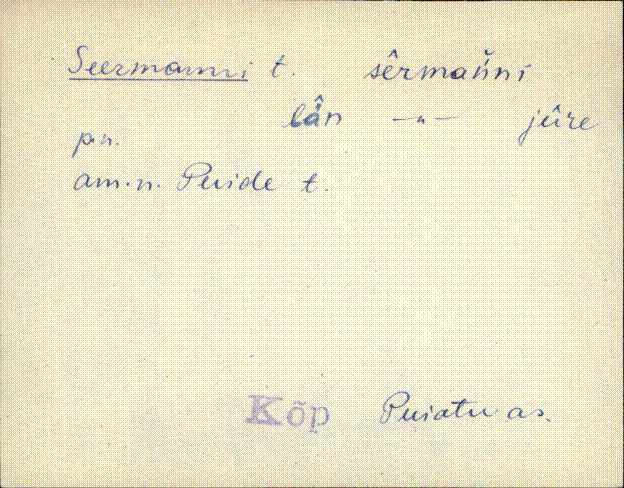 Seermanni t. sêrmaǹni
lǟ̂n —"— jûre
p.n.
am.n. Puide t.
Kõp Puiatu as.